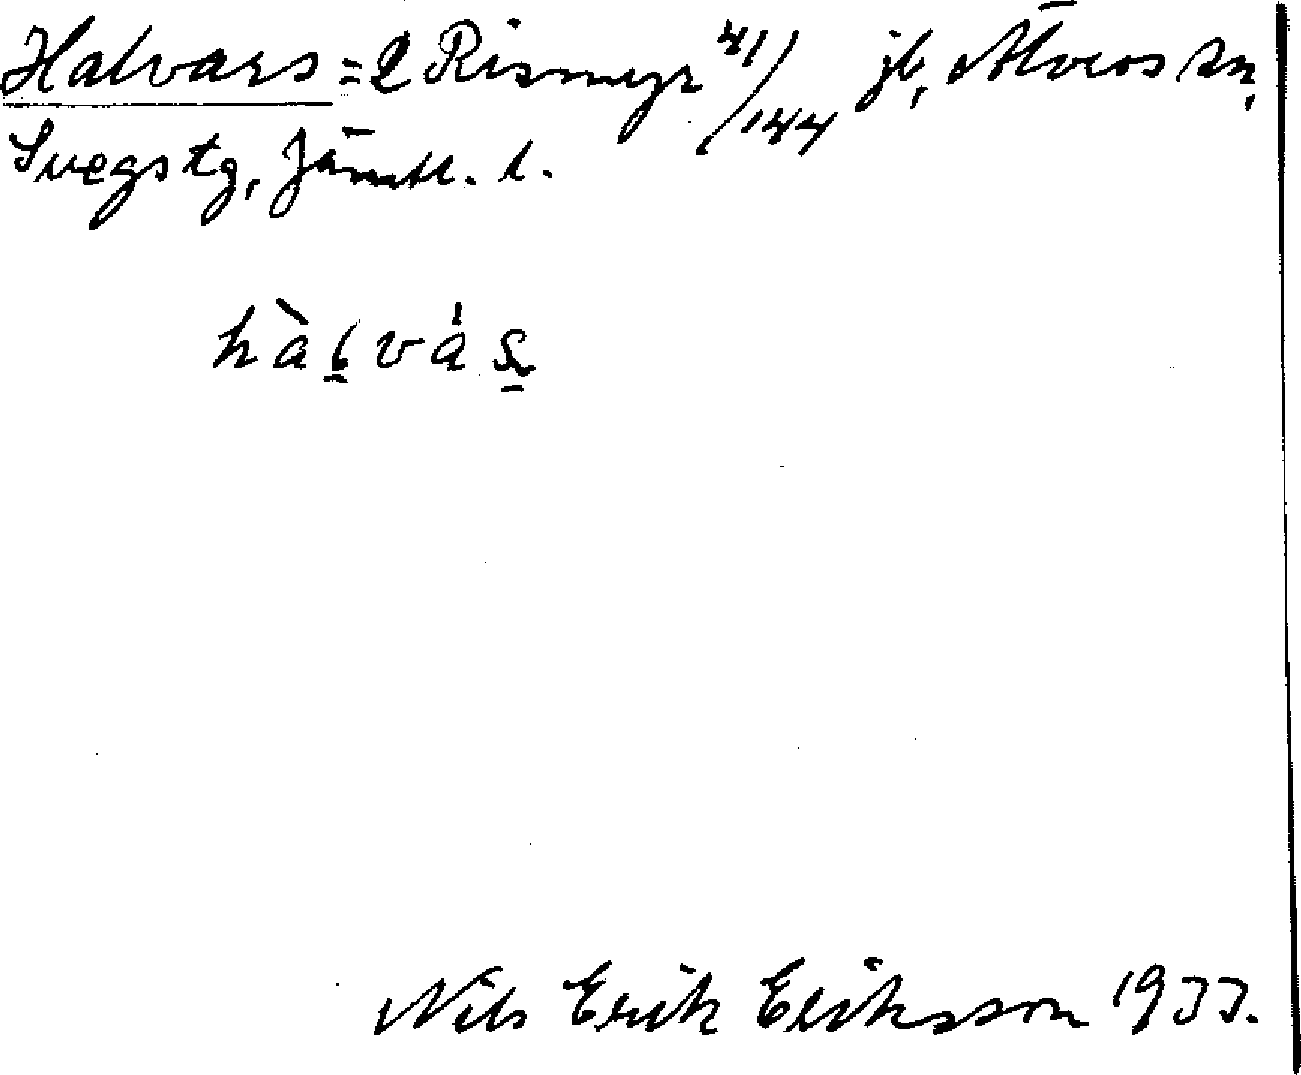 Halvars = 2 Rismyr 41/144 jb, Älvros sn,
Svegs tg, Jämtl. l.
hàɭváʂ
Nils Erik Eriksson 1933.